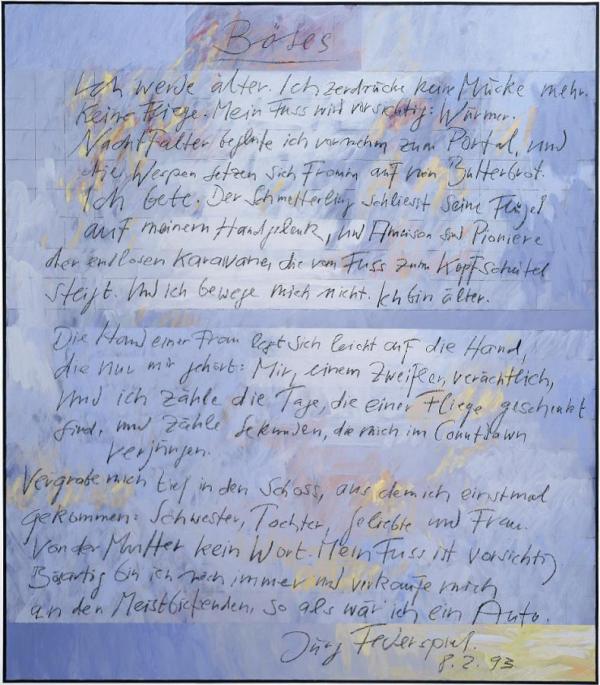 Böses
Ich werde älter. Ich zerdrücke keine Mücke mehr.
Keine Fliege. Mein Fuss wird vorsichtig: Würmer.
Nachtfalter begleite ich vornehm zum Portal, und
die Wespen setzen sich fromm auf mein Butterbrot.
Ich bete. Der Schmetterling schliesst seine Flügel
auf meinem Handgelenk, und Ameisen sind Pioniere
der endlosen Karavane, die vom Fuss zum Kopfscheitel
steigt. Und ich bewege mich nicht. Ich bin älter.
Die Hand einer Frau legt sich leicht auf die Hand,
die nur mir gehört: Mir, einem Zweifler, verächtlich,
und ich zähle die Tage, die einer Fliege geschenkt
sind, und zähle Sekunden, die mich im Countdown
verjüngen.
Vergrabe mich tief in den Schoss, aus dem ich einstmal
gekommen: Schwester, Tochter, Geliebte und Frau.
Von der Mutter kein Wort. Mein Fuss ist vorsichtig
Bösartig bin ich noch immer und verkaufe mich
an den Meistbietenden, so als wär ich ein Auto.
Jürg Federspiel.
8.2.93